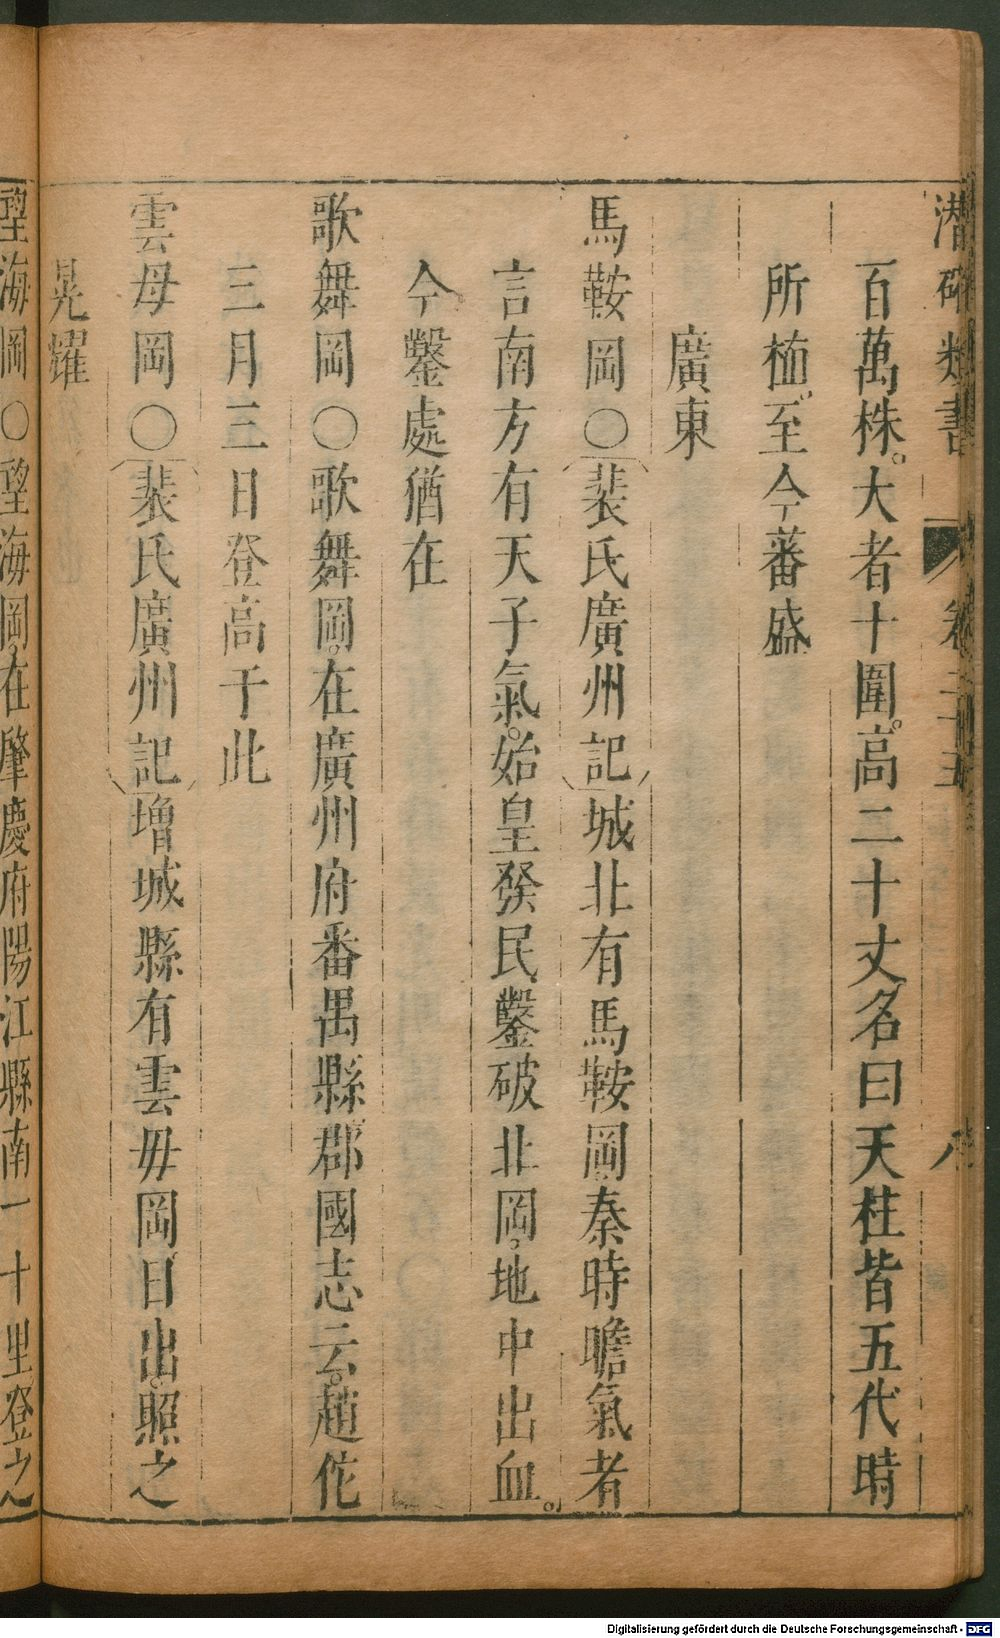 潛確類書 卷二十五 八
百萬株。大者十圍。高二十丈。名曰天柱皆五代時
所植。至今蕃盛
廣東
馬鞍岡○裴氏廣州記城北有馬鞍岡秦時瞻氣者
言南方有天子氣。始皇發民鑿破北岡。地中出血。
今鑿處猶在
歌舞岡○歌舞岡。在廣州府番禺縣郡國志云。趙佗
三月三日登高于此
雲母岡○裴氏廣州記增城縣有雲母岡日出。照之
晃耀
望海岡○望海岡。在肇慶府陽江縣南一十里登之
Digitalisierung gefördert durch die Deutsche Forschungsgemeinschaft - DFG